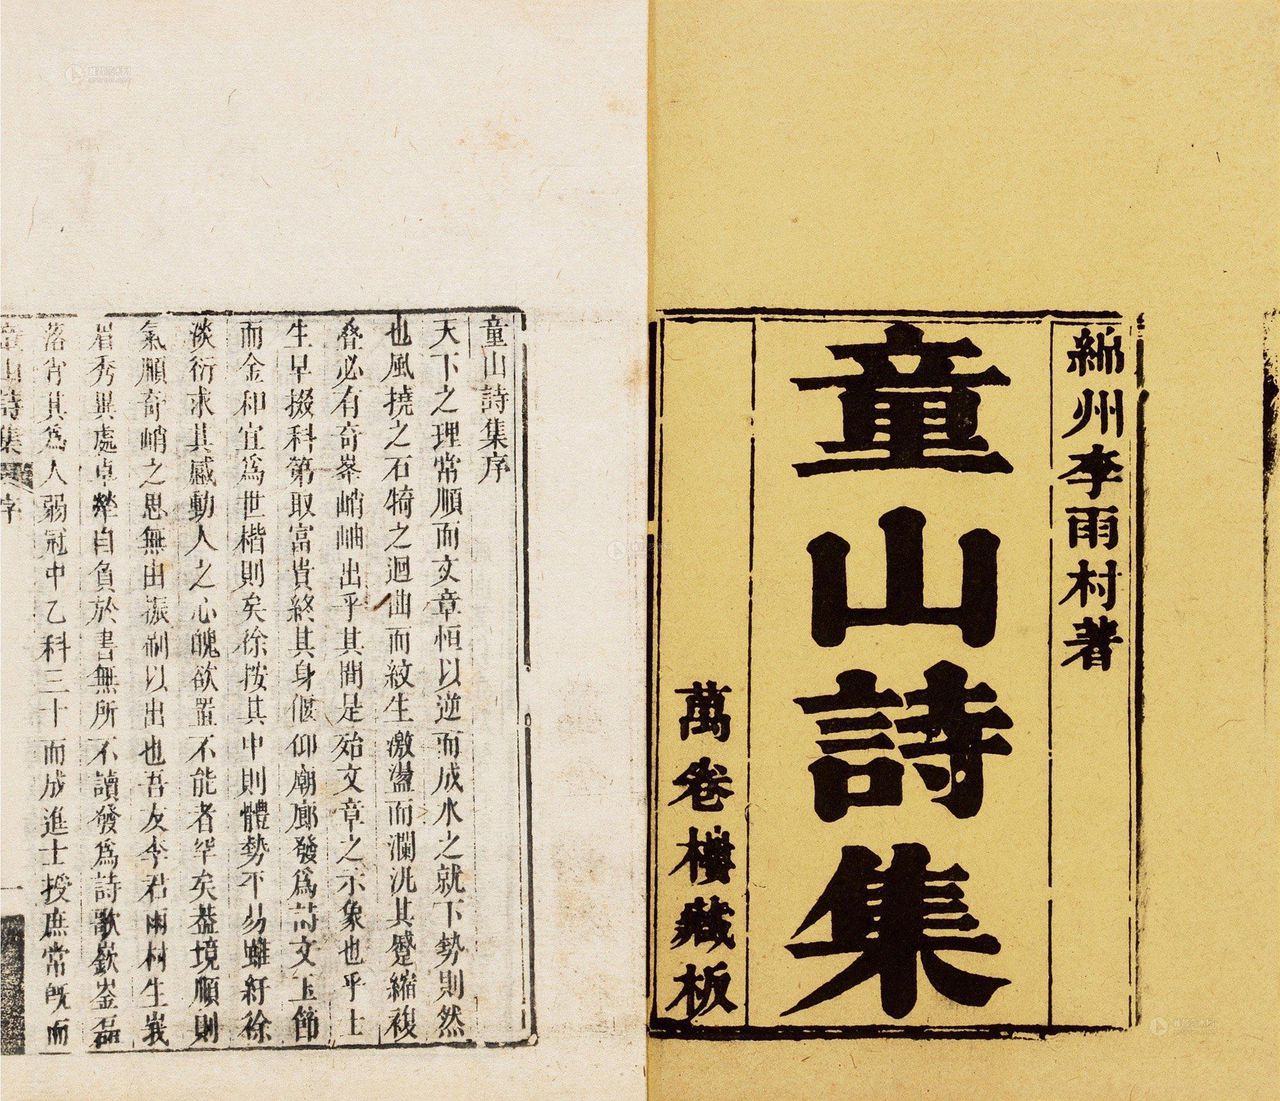 綿州李雨村著
童山詩集
萬卷樓藏板
童山詩集序
天下之理常順而文章恒以逆而成水之就下勢則然
也風撓之石犄之迴曲而紋生激盪而瀾洸其蹙縮複
叠必有奇峯峭岫出乎其間是殆文章之示象也乎士
生早掇科第取富貴終其身偃仰廟廊發為詩文玉節
而金和宜為世楷則矣徐按其中則體勢不昜雖紆徐
淡衍求其感動人之心醜欲置不能者罕矣葢境順則
氣順奇峭之思無由振刷以出也吾友李君雨村生峩
眉秀異處卓犖自負於書無所不讀發為詩歌嶔崟磊
落肖其為人弱冠中乙科三十而成進士授庶常旣而
童山詩集 序 一